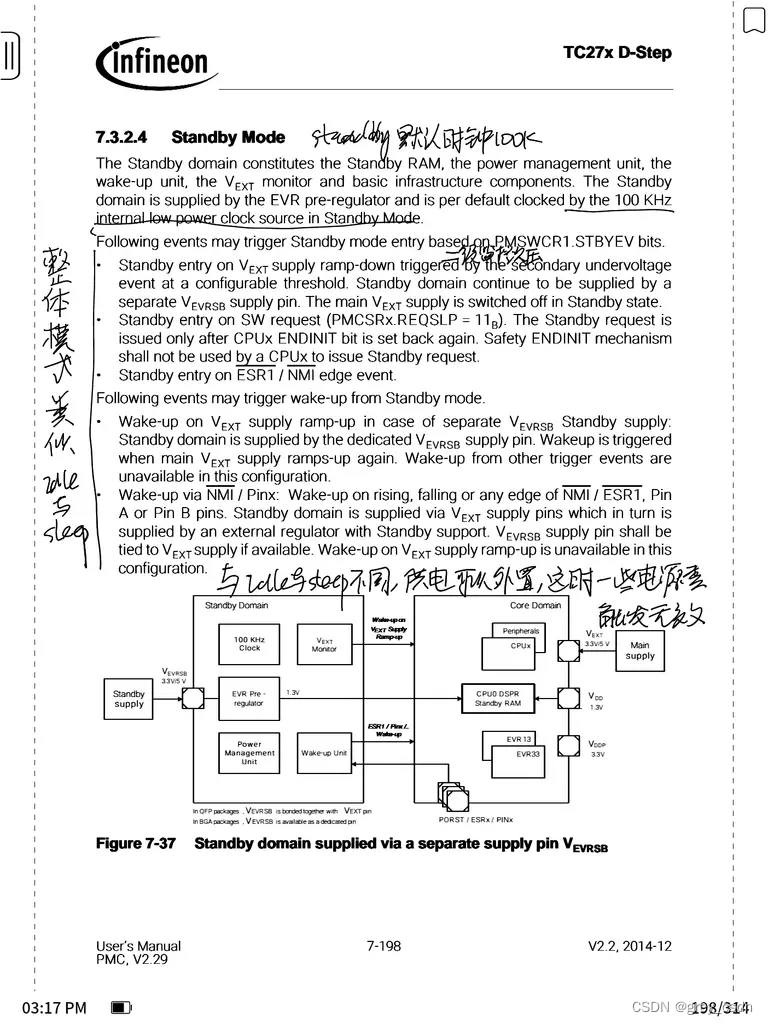 infineon
TC27x D-Step
7.3.2.4 Standby Mode
standby 默认时钟100K
The Standby domain constitutes the Standby RAM, the power management unit, the
wake-up unit, the VEXT monitor and basic infrastructure components. The Standby
domain is supplied by the EVR pre-regulator and is per default clocked by the 100 KHz
internal low power clock source in Standby Mode.
Following events may trigger Standby mode entry based on PMSWCR1.STBYEV bits.
• Standby entry on VEXT supply ramp-down triggered by the secondary undervoltage
event at a configurable threshold. Standby domain continue to be supplied by a
separate VEVRSB supply pin. The main VEXT supply is switched off in Standby state.
• Standby entry on SW request (PMCSRx.REQSLP = 11B). The Standby request is
issued only after CPUx ENDINIT bit is set back again. Safety ENDINIT mechanism
shall not be used by a CPUx to issue Standby request.
• Standby entry on ESR1 / NMI edge event.
Following events may trigger wake-up from Standby mode.
• Wake-up on VEXT supply ramp-up in case of separate VEVRSB Standby supply:
Standby domain is supplied by the dedicated VEVRSB supply pin. Wakeup is triggered
when main VEXT supply ramps-up again. Wake-up from other trigger events are
unavailable in this configuration.
• Wake-up via NMI / Pinx: Wake-up on rising, falling or any edge of NMI / ESR1, Pin
A or Pin B pins. Standby domain is supplied via VEXT supply pins which in turn is
supplied by an external regulator with Standby support. VEVRSB supply pin shall be
tied to VEXT supply if available. Wake-up on VEXT supply ramp-up is unavailable in this
configuration.
整体模式类似
Idle
与
sleep
与Idle与sleep不同,供电可以外置,这时一些电源
触发无效
Standby Domain
Core Domain
100 KHz
Clock
VEXT
Monitor
Wake-up on
VEXT Supply
Ramp-up
Peripherals
CPUx
VEXT
3.3V/5 V
Main
supply
VEVRSB
3.3V/5 V
Standby
supply
EVR Pre -
regulator
1.3V
CPU0 DSPR
Standby RAM
VDD
1.3V
ESR1 / Pinx/..
Wake-up
Power
Management
Unit
Wake-up Unit
EVR 13
EVR33
VDDP
3.3V
In QFP packages , VEVRSB is bonded together with VEXT pin
In BGA packages , VEVRSB is available as a dedicated pin
PORST / ESRx / PINx
Figure 7-37 Standby domain supplied via a separate supply pin VEVRSB
User's Manual
7-198
V2.2, 2014-12
PMC, V2.29
03:17 PM
198/314